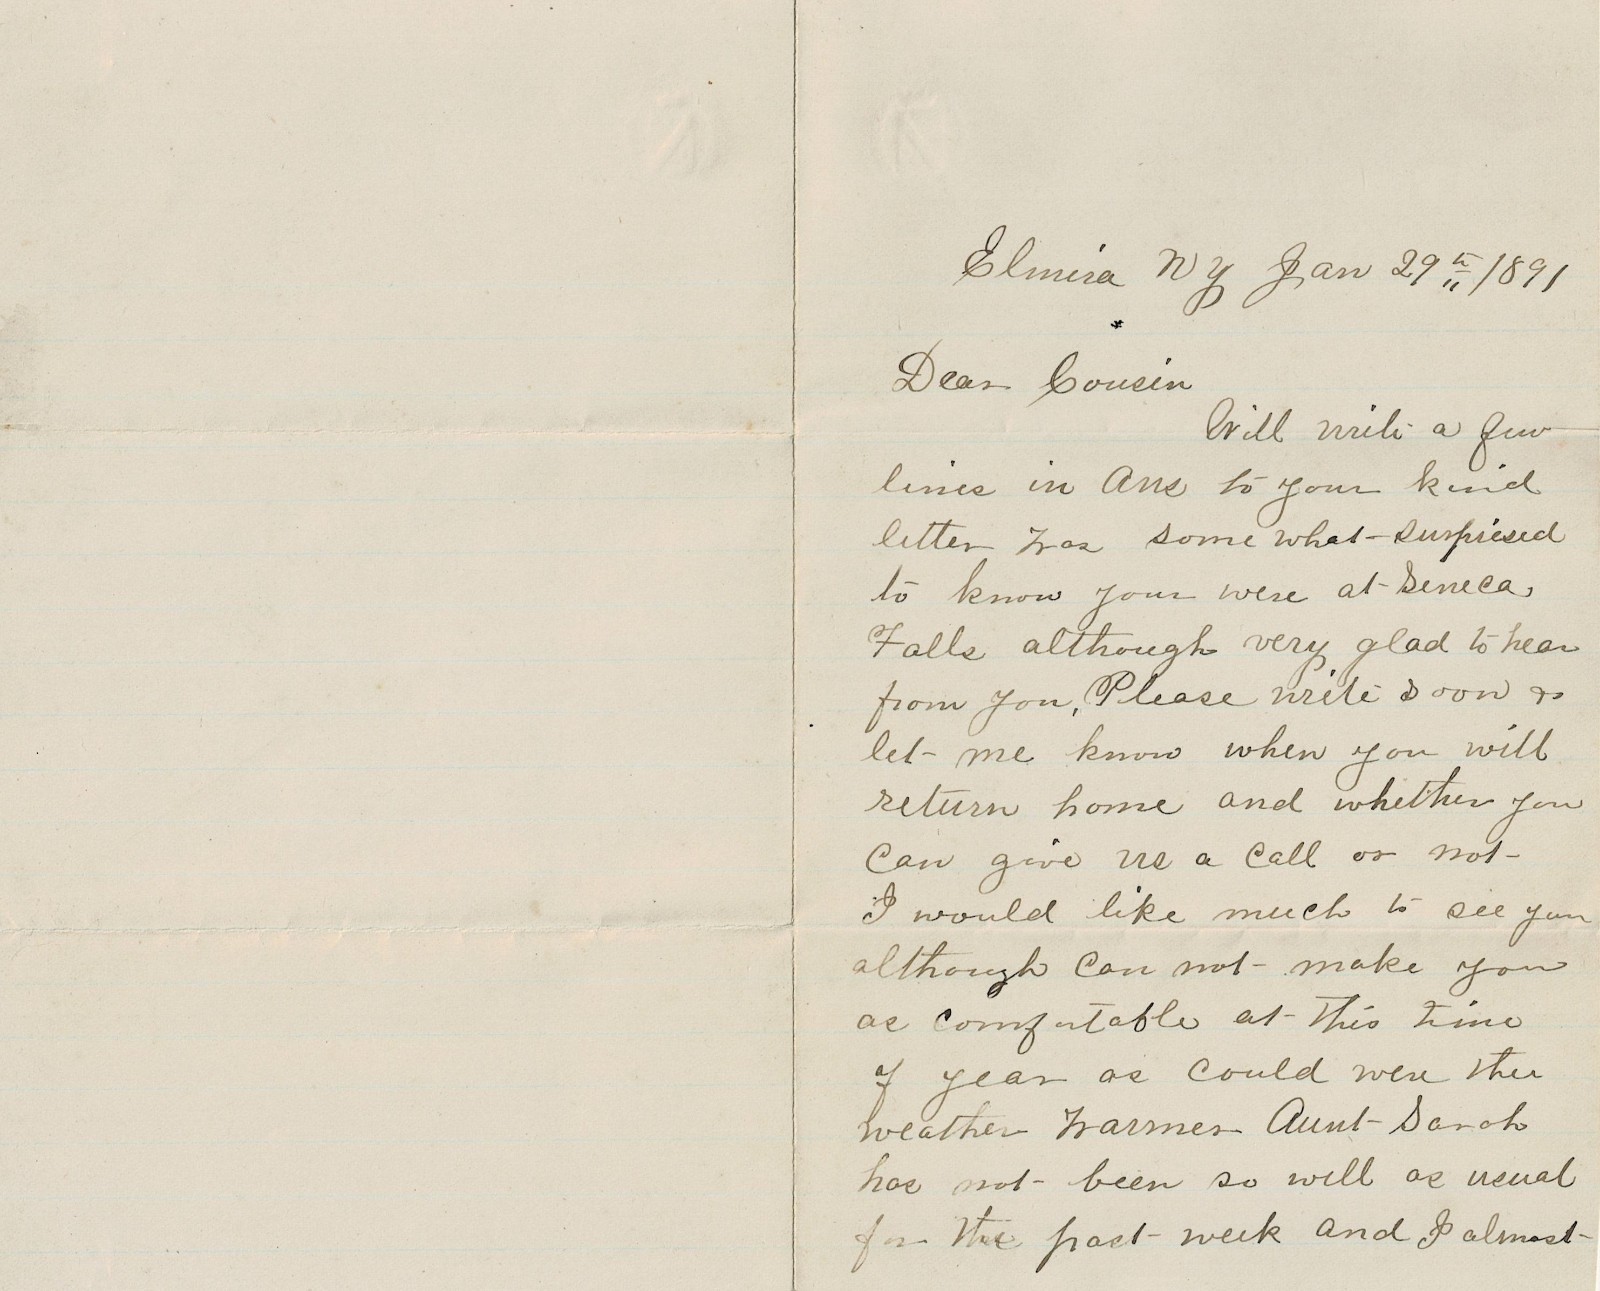 Elmira N Y Jan 29th /891
Dear Cousin
Will write a few
lines in Ans to your kind
letter was some what surprised
to know your were at Seneca
Falls although very glad to hear
from you, Please write soon &
let me know when you will
return home and whether you
can give us a call or not
I would like much to see you
although can not make you
as comfortable at this time
of year as could were the
weather warmer Aunt Sarah
has not been so well as usual
for the past week and I almost